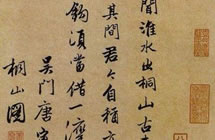 聞淮水出桐山古
其間君今自種
鈎須當借一
吳門唐寅
桐山圖